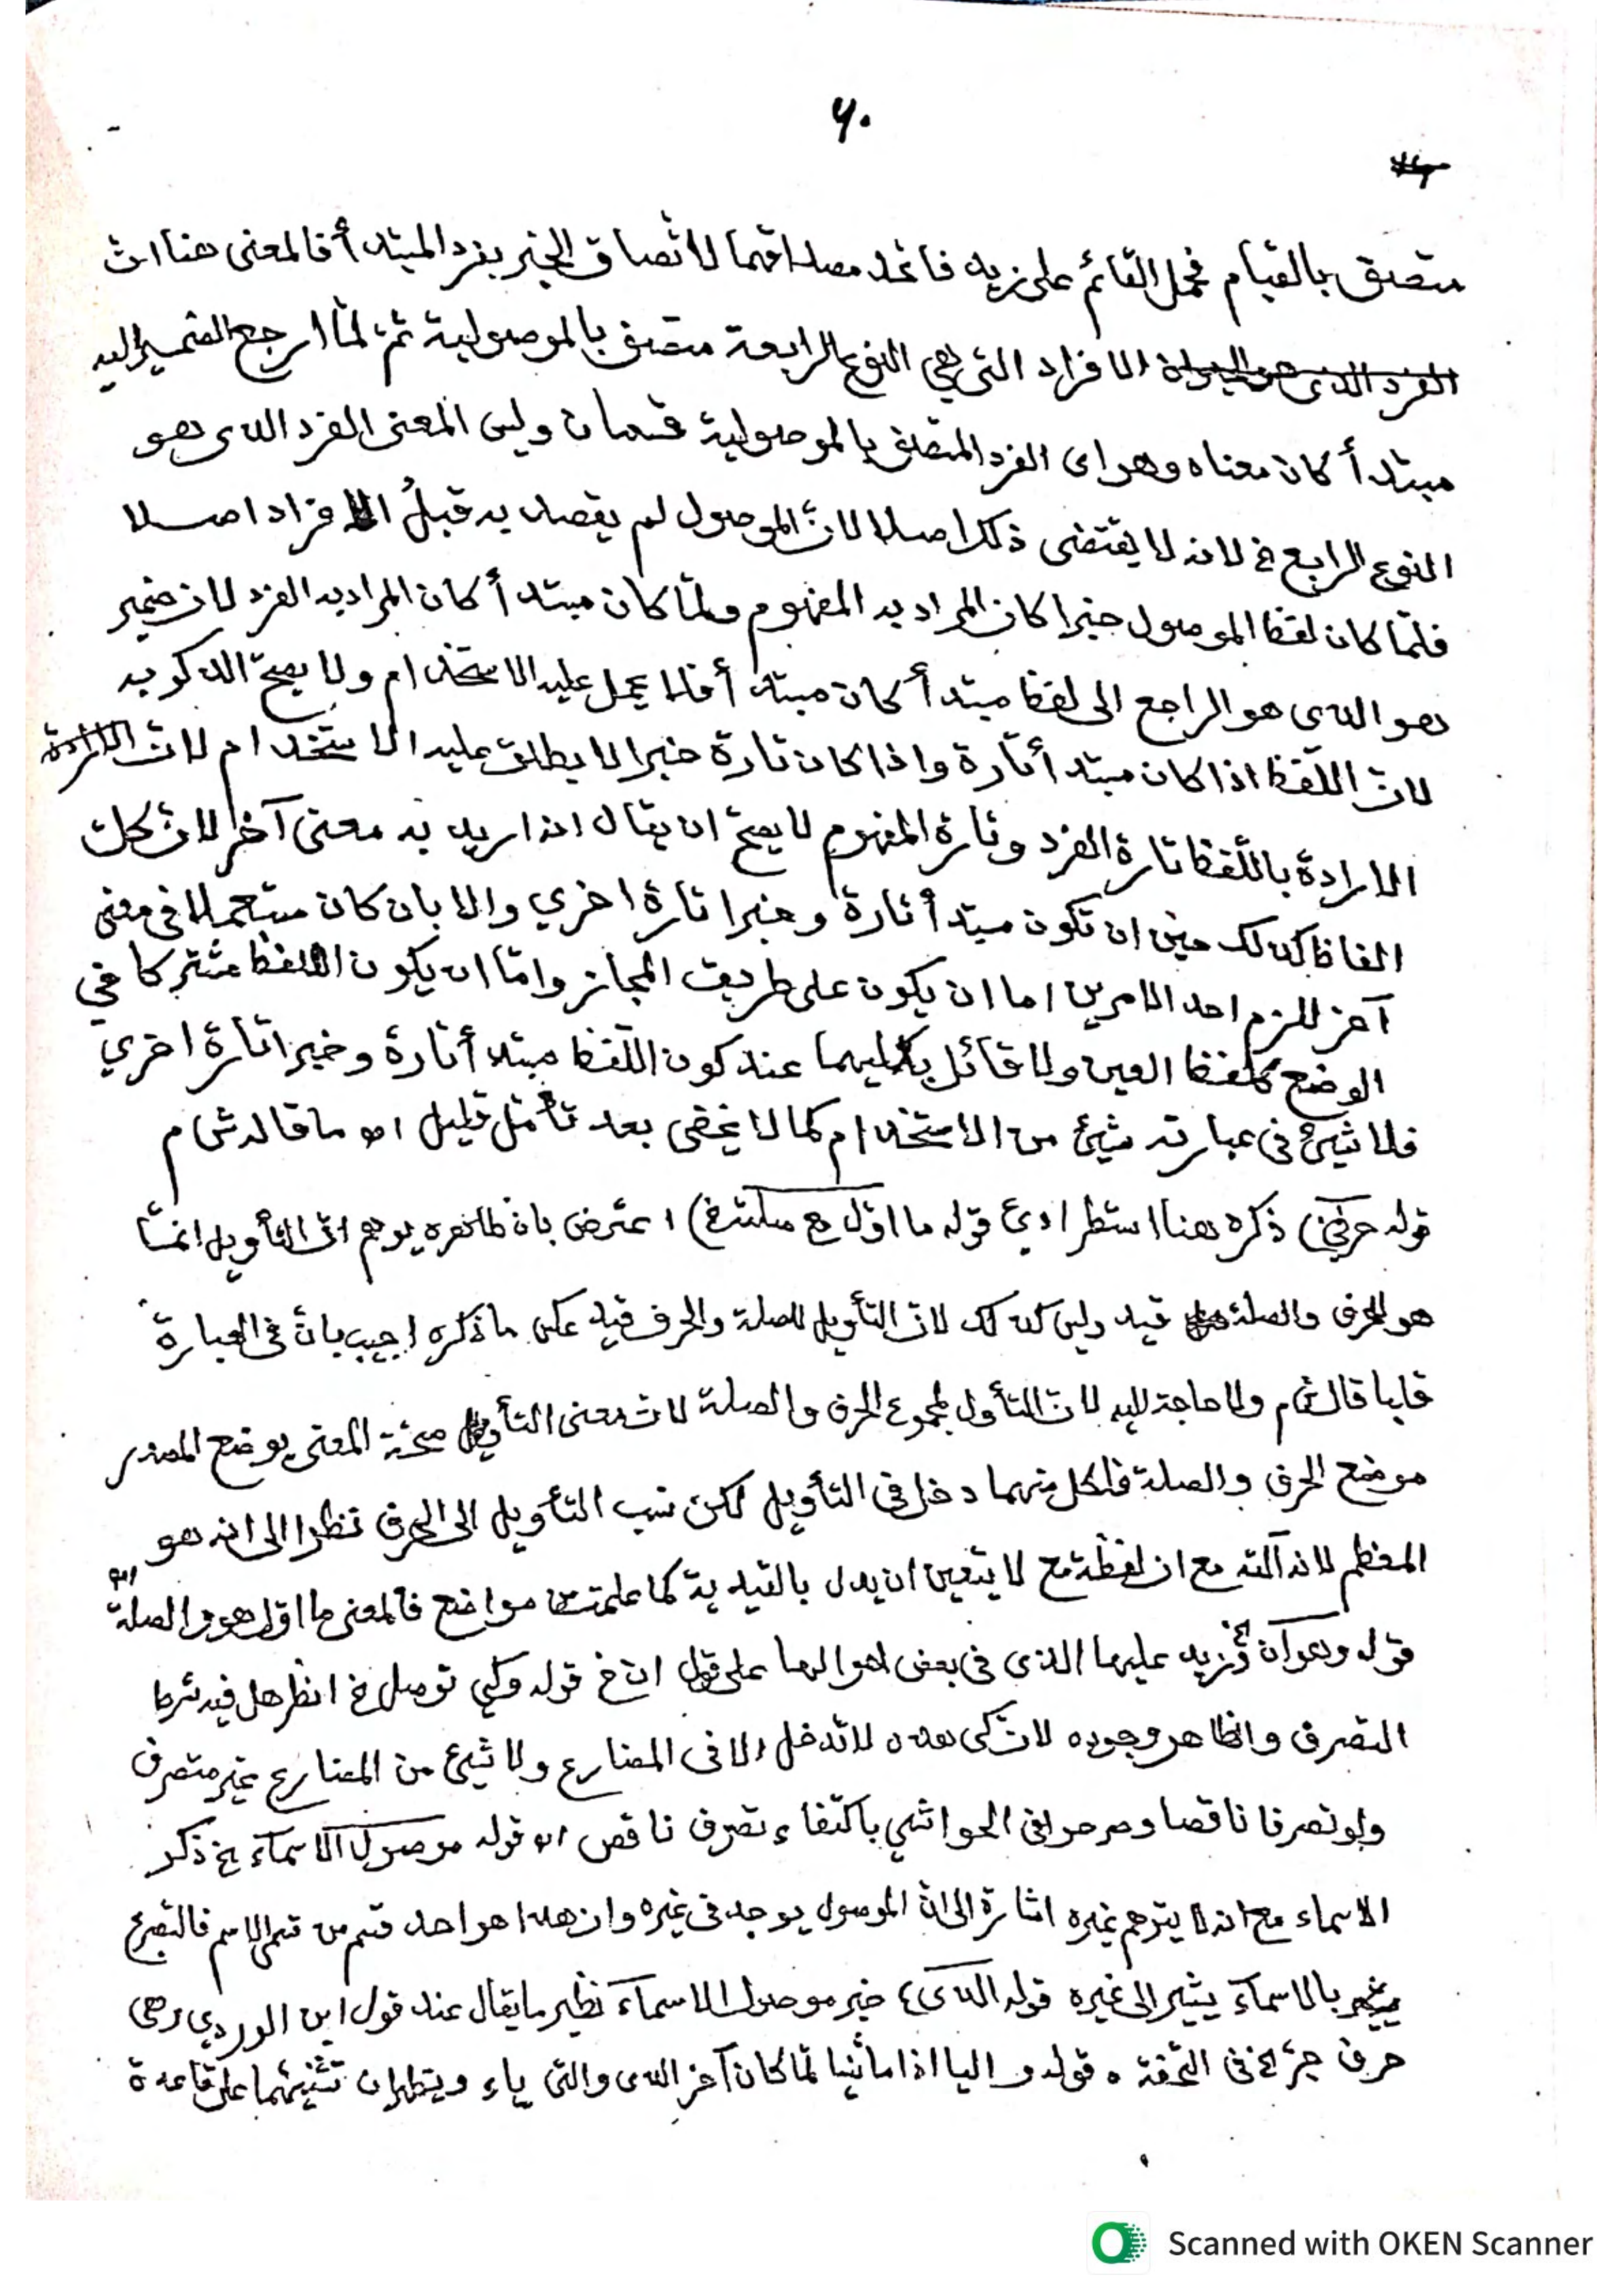 ٦٠
متصق بالقيام فحمل القائم على زيد فاتحد مصداقهما لاتصاق الخبر بفرد المبتدأ فالمعنى هنا ان
الفرد الذى الافراد التى هي النوع الرابعة متصق بالموصولية ثم لمّا ارجع الضمير اليه
مبتدأ كان معناه وهو اى الفرد المتصف بالموصولية قسمان وليس المعنى الفرد الذى هو
النوع الرابع لخ لانه لا يقتضى ذلك اصلا لانّ الموصول لم يقصد به قبلُ الافراد اصلا
فلمّا كان لفظ الموصول خبرا كان المراد به المفهوم ولمّا كان مبتدأ كان المراد به الفرد لان ضمير
هو الذى هو الراجع الى لفظ مبتدأ كان مبتدأ فلا يحمل عليه الاستخدام ولا يصحّ الذكو به
لانّ اللّفظ اذا كان مبتدأ تارة واذا كان تارة خبرا لا يطلق عليه الاستخدام لانّ
الارادة باللّفظ تارة الفرد وتارة المفهوم لا يصحّ ان يقال اذا اريد به معنى آخر لانّ كلّ
الفاظ كذلك حين ان تكون مبتدأ تارة وخبرا تارة اخري والا بان كان مستعملا فى معنى
آخر للزم احد الامرين اما ان يكون على طريق المجاز وامّا ان يكون اللفظ مشتركا في
الوضع كلفظ العين ولا قائل بكليهما عند كون اللّفظ مبتدأ تارة وخبرا تارة اخري
فلا شيئ فى عبارته شيئ من الاستخدام كما لا يخفى بعد تأمّل قليل اه ما قاله ش م
قوله حرفيّ) ذكره هنا استطرادي قوله ما اوّل مع صلته لخ) اعترض بان ظاهره يوهم انّ التأويل انمّا
هو للحرف والصلة قيد وليس كذلك لانّ التأويل للصلة والحرف قيد عكس ما ذكره اجيب بانّ فى العبارة
قلبا قال ش م ولا حاجة اليه لانّ التأول لمجموع الحرف والصلة لانّ معنى التأويل صحّة المعنى بوضع المصدر
موضع الحرف والصلة فلكل منهما دخل فى التأويل لكن نسب التأويل الى الحرف نظرا الى انه هو
المعظم لانه آلته مع ان لفظة مع لا يتعين ان يدل بالقيدية كما علمت مواضع فالمعنى ما اوّل هو والصلة اه
قوله وهو آن لخ وزيد عليها الذى فى بعض احوالها على قول ان لخ قوله وكي توصل لخ انظر هل فيه شرط
التصرف والظاهر وجوده لانّ كى هذه لا تدخل الا فى المضارع ولا شيئ من المضارع غير متصرف
ولو تصرفا ناقصا وصرحوا فى الحواشي باكتفاء تصرف ناقص اه قوله موصول الاسمآء لخ ذكر
الاسماء مع انه لا يتوهم غيره اشارة الى انّ الموصول يوجد فى غيره وان هذا هو احد قسم من قسمي الاسم فالتصريح
بالاسمآء يشير الى غيره قوله الذى) خبر موصول الاسمآء نظير ما يقال عند قول ابن الوردي وهي
حرف جرّ لخ فى التحّفة ٥ قوله واليا اذا ما ثنيا لمّا كان آخر الذى والتى ياء ويتطلبان تثنيتهما على قاعدة
Scanned with OKEN Scanner